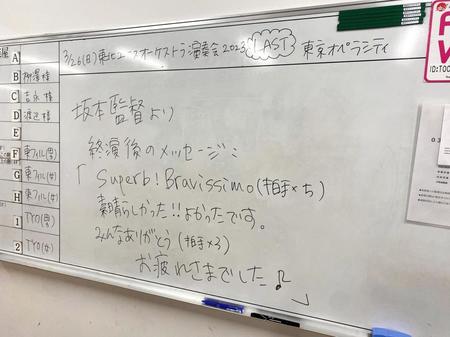 3/26(日)東北ユースオーケストラ演奏会2023 LAST 東京オペラシティ
坂本監督より
終演後のメッセージ:
「Superb! Bravissimo(拍手×5)
素晴らしかった!!よかったです。
みんなありがとう(拍手×3)
お疲れさまでした
」
屋 A
B 柳澤様
C 吉永様
D 渡辺様
E
F 東フィル(男)
G 東フィル(女)
H 東フィル(女)
1 TYO(男)
2 TYO(女)
ID:TOO